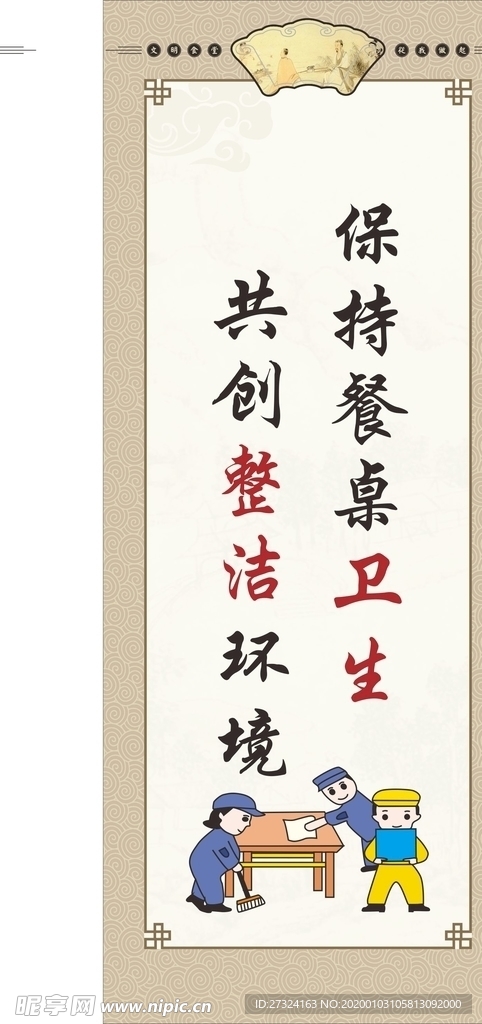 文明食堂
从我做起
保持餐桌卫生
共创整洁环境
昵享网 www.nipic.cn
ID:27324163 NO:20200103105813092000